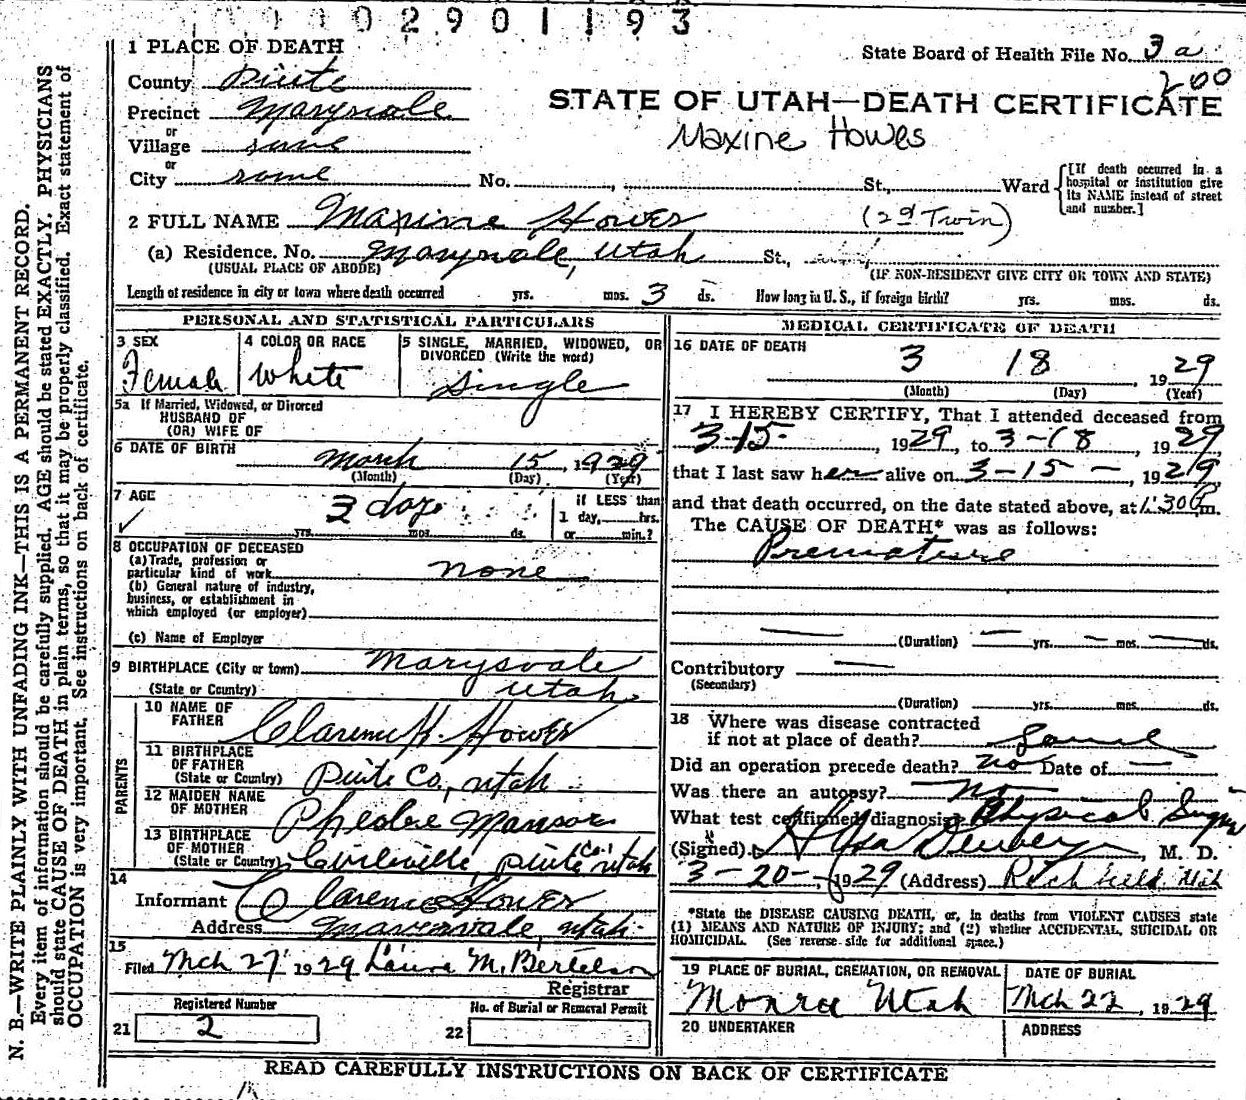 0 2 9 0 1 1 9 3
1 PLACE OF DEATH
State Board of Health File No. 3 a
200
County Piute
STATE OF UTAH—DEATH CERTIFICATE
Precinct Marysvale
Maxine Howes
or
Village same
or
City same No. St., Ward
[If death occurred in a hospital or institution give its NAME instead of street and number.]
2 FULL NAME Maxine Howes (2nd Twin)
(a) Residence. No. Marysvale, Utah St.,
(USUAL PLACE OF ABODE) (IF NON-RESIDENT GIVE CITY OR TOWN AND STATE)
Length of residence in city or town where death occurred yrs. mos. 3 ds. How long in U. S., if foreign birth? yrs. mos. ds.
PERSONAL AND STATISTICAL PARTICULARS
3 SEX
Female
4 COLOR OR RACE
White
5 SINGLE, MARRIED, WIDOWED, OR
DIVORCED (Write the word)
Single
5a If Married, Widowed, or Divorced
HUSBAND OF
(OR) WIFE OF
6 DATE OF BIRTH March 15, 1929
(Month) (Day) (Year)
7 AGE 3 days
yrs. mos. ds.
if LESS than
1 day, hrs.
or min.?
8 OCCUPATION OF DECEASED
(a) Trade, profession or
particular kind of work none
(b) General nature of industry,
business, or establishment in
which employed (or employer)
(c) Name of Employer
9 BIRTHPLACE (City or town) Marysvale
(State or Country) Utah
PARENTS
10 NAME OF
FATHER Clarence H. Howes
11 BIRTHPLACE
OF FATHER
(State or Country) Piute Co., Utah
12 MAIDEN NAME
OF MOTHER Pheobe Manson
13 BIRTHPLACE
OF MOTHER
(State or Country) Circleville, Piute Co. Utah
14
Informant Clarence Howes
Address Marysvale, Utah
15
Filed Mch 27 1929 Laura M. Bertelson
Registrar
Registered Number
21 2
No. of Burial or Removal Permit
22
MEDICAL CERTIFICATE OF DEATH
16 DATE OF DEATH
3 18, 1929
(Month) (Day) (Year)
17 I HEREBY CERTIFY, That I attended deceased from
3-15-, 1929, to 3-18, 1929
that I last saw her alive on 3-15-, 1929
and that death occurred, on the date stated above, at 1:30 P m.
The CAUSE OF DEATH* was as follows:
Premature
(Duration) yrs. mos. ds.
Contributory
(Secondary)
(Duration) yrs. mos. ds.
18 Where was disease contracted
if not at place of death? Same
Did an operation precede death? no Date of —
Was there an autopsy? No
What test confirmed diagnosis? Physical Signs
(Signed) , M. D.
3-20-, 1929 (Address) Richfield, Utah
*State the DISEASE CAUSING DEATH, or, in deaths from VIOLENT CAUSES state
(1) MEANS AND NATURE OF INJURY; and (2) whether ACCIDENTAL, SUICIDAL OR
HOMICIDAL. (See reverse side for additional space.)
19 PLACE OF BURIAL, CREMATION, OR REMOVAL
Monroe Utah
DATE OF BURIAL
Mch 22, 1929
20 UNDERTAKER
ADDRESS
READ CAREFULLY INSTRUCTIONS ON BACK OF CERTIFICATE
N. B.—WRITE PLAINLY WITH UNFADING INK—THIS IS A PERMANENT RECORD.
Every item of information should be carefully supplied. AGE should be stated EXACTLY. PHYSICIANS
should state CAUSE OF DEATH in plain terms, so that it may be properly classified. Exact statement of
OCCUPATION is very important. See instructions on back of certificate.